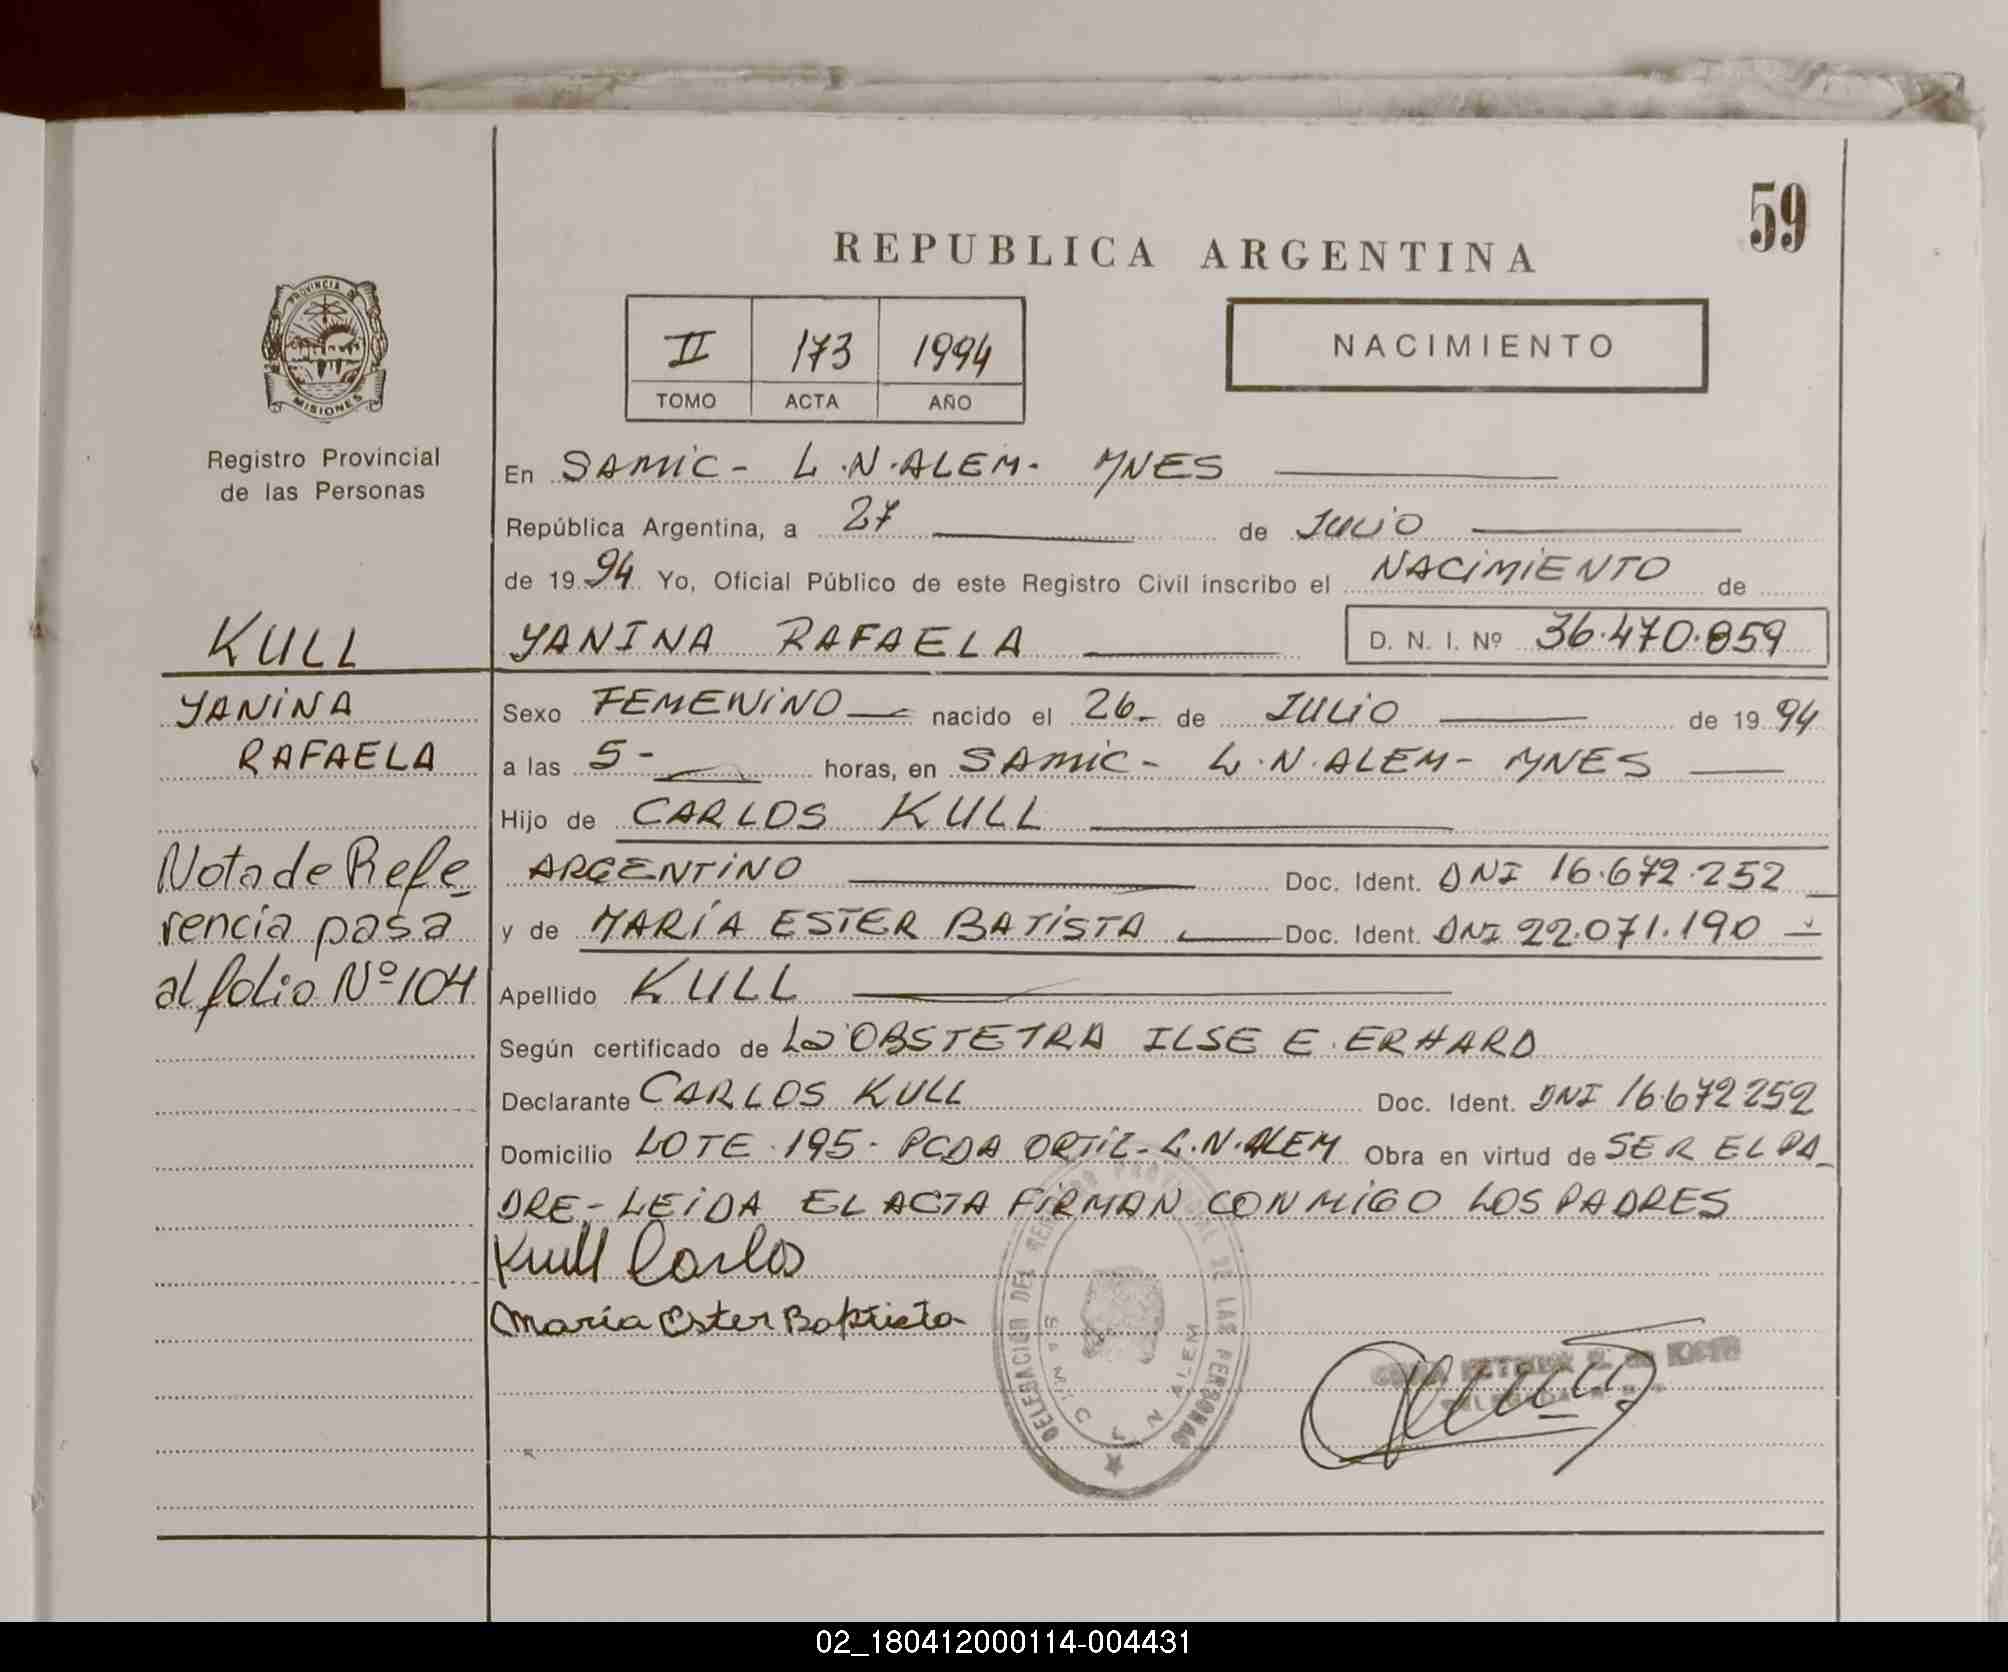 59
REPUBLICA ARGENTINA
II 173 1994
TOMO ACTA AÑO
NACIMIENTO
PROVINCIA DE
MISIONES
Registro Provincial
de las Personas
En SAMIC - L.N.ALEM - MNES
República Argentina, a 27 de JULIO
de 1994 Yo, Oficial Público de este Registro Civil inscribo el NACIMIENTO de
KULL YANINA RAFAELA D. N. I. Nº 36.470.859
YANINA
RAFAELA
Sexo FEMENINO nacido el 26 de JULIO de 1994
a las 5- horas, en SAMIC - L.N.ALEM - MNES
Hijo de CARLOS KULL
ARGENTINO Doc. Ident. DNI 16.672.252
y de MARÍA ESTER BATISTA Doc. Ident. DNI 22.071.190
Nota de Refe-
rencia pasa
al folio Nº 104
Apellido KULL
Según certificado de La OBSTETRA ILSE E. ERHARD
Declarante CARLOS KULL Doc. Ident. DNI 16.672252
Domicilio LOTE 195 - PCDA ORTIZ - L.N.ALEM Obra en virtud de SER EL PA-
DRE - LEIDA EL ACTA FIRMAN CONMIGO LOS PADRES
Kull Carlos
María Ester Baptista
DELEGACION DEL REGISTRO PROVINCIAL DE LAS PERSONAS
SAMIC L N ALEM
02_180412000114-004431